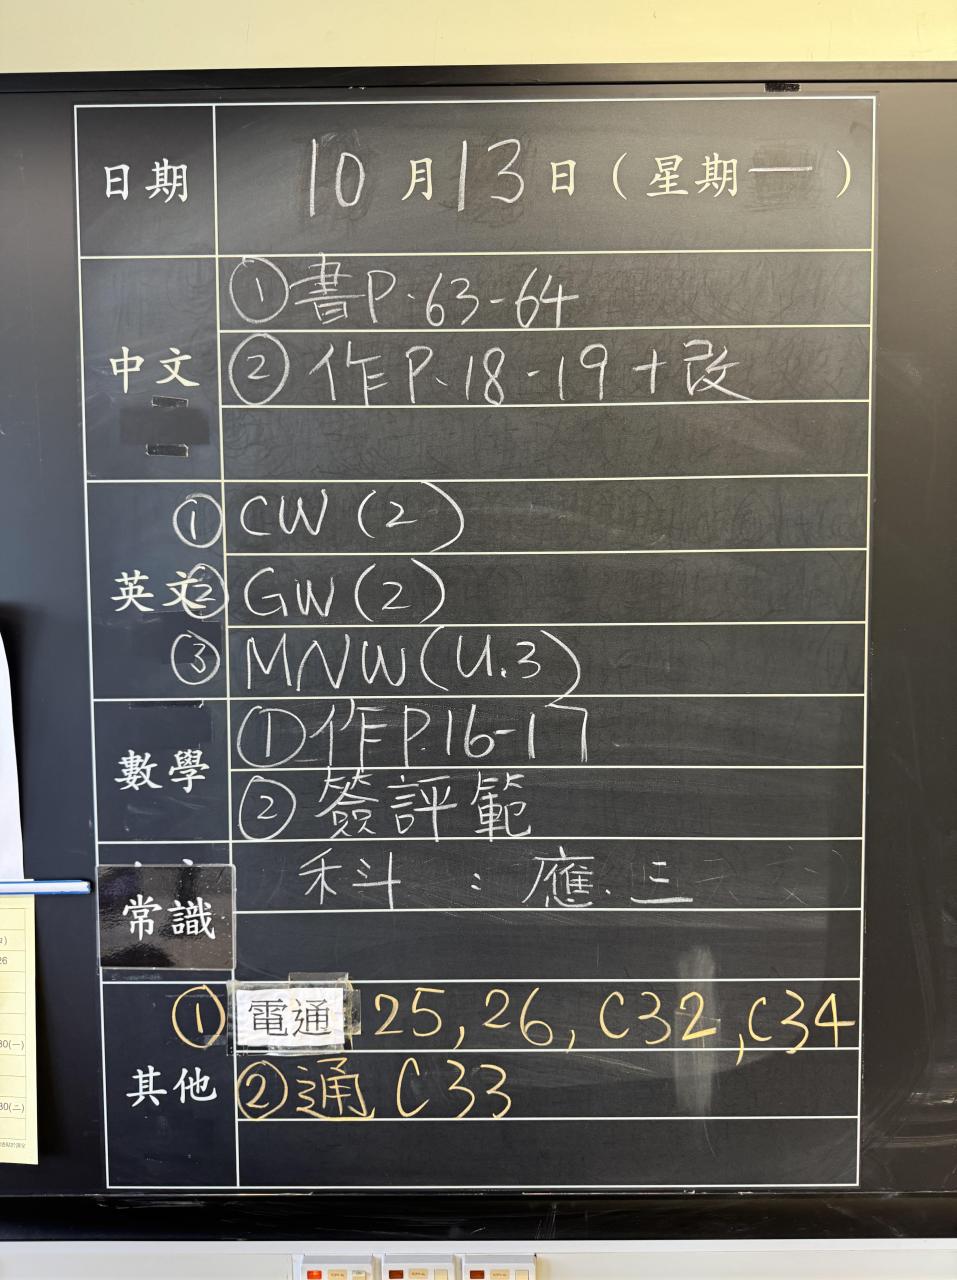 日期 10月13日(星期一)
中文
①書P.63-64
②作P.18-19+改
英文
①CW(2)
②GW(2)
③MNW(U.3)
數學
①作P.16-17
②簽評範
常識
科:應.三
其他
①電通 25, 26, C32, C34
②通 C33